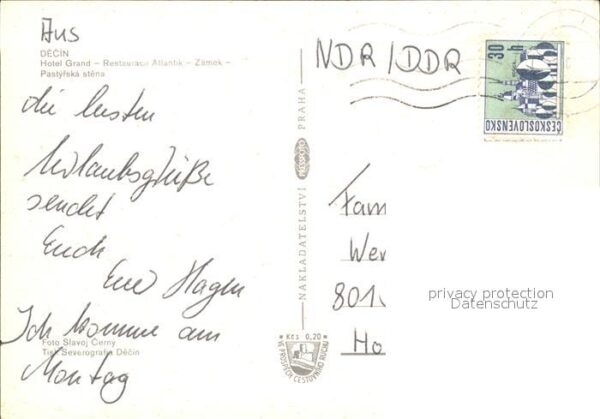 Aus
DĚČÍN
Hotel Grand – Restaurace Atlantik – Zámek –
Pastýřská stěna
die besten
Urlaubsgrüße
sendet
Euch
Euer Hagen
Ich komme am
Montag
Foto Slavoj Černý
Tisk Severografia Děčín
NAKLADATELSTVÍ PRESSFOTO PRAHA
Kčs 0,20
VE PROSPĚCH CESTOVNÍHO RUCHU
NDR/DDR
30 h
ČESKOSLOVENSKO
Fam
Wer
801
Ho
privacy protection
Datenschutz